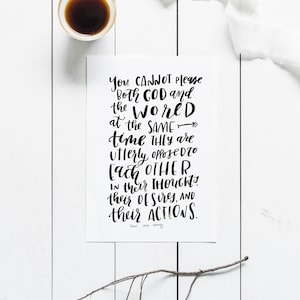 you CANNOT please
both GOD and
the WORLD
at the SAME
time THEY are
utterly opposed to
EACH OTHER
IN their THOUGHTS,
their DESIRES, AND
their ACTIONS.